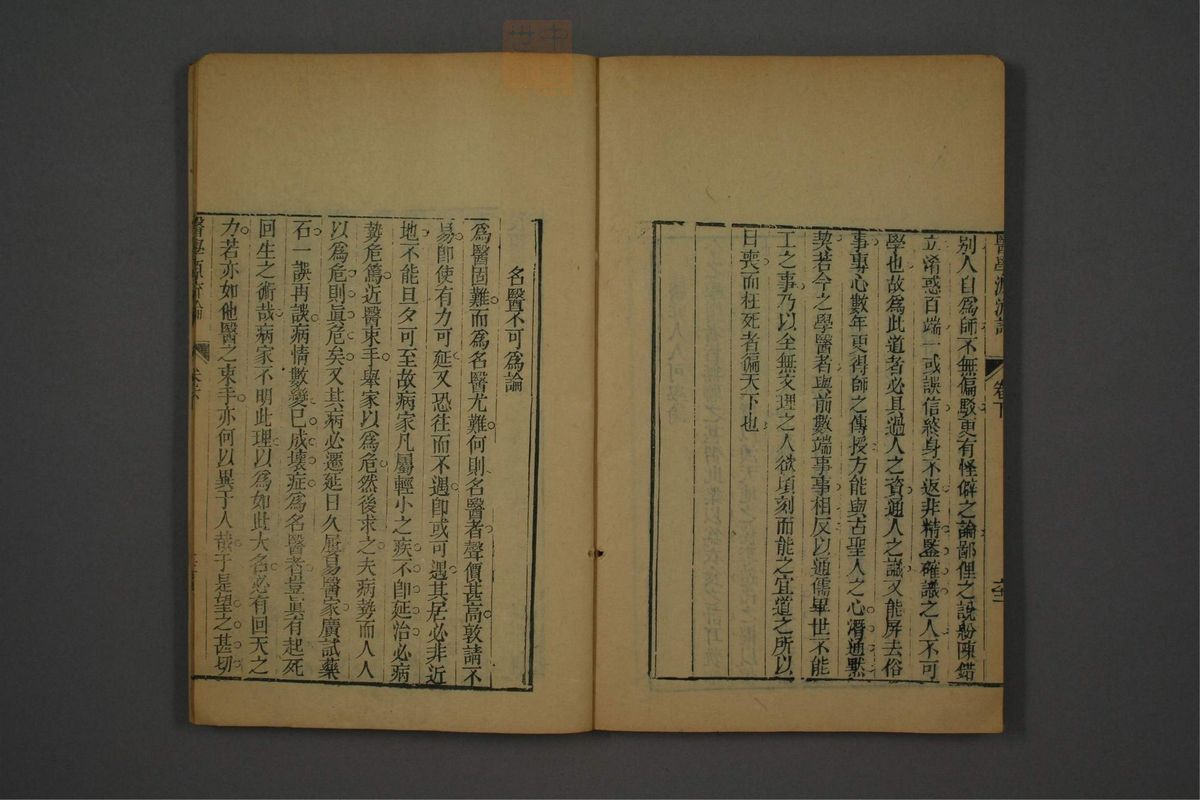 醫學源流論 卷下
別人自爲師不無偏駁更有怪僻之論鄙俚之說紛陳錯
立淆惑百端一或誤信終身不返非精鑒確識之人不可
學也故爲此道者必具過人之資通人之識又能屏去俗
事專心數年更得師之傳授方能與古聖人之心潛通默
契若今之學醫者與前數端事事相反以通儒畢世不能
工之事乃以全無文理之人欲頃刻而能之宜道之所以
日喪而枉死者徧天下也
名醫不可爲論
爲醫固難而爲名醫尤難何則名醫者聲價甚高敦請不
易卽使有力可延又恐往而不遇卽或可遇其居必非近
地不能旦夕可至故病家凡屬輕小之疾不卽延治必病
勢危篤近醫束手舉家以爲危然後求之夫病勢而人人
以爲危則眞危矣又其病必遷延日久屢易醫家廣試藥
石一誤再誤病情數變已成壞症爲名醫者豈眞有起死
回生之術哉病家不明此理以爲如此大名必有回天之
力若亦如他醫之束手亦何以異于人哉于是望之甚切
醫學源流論